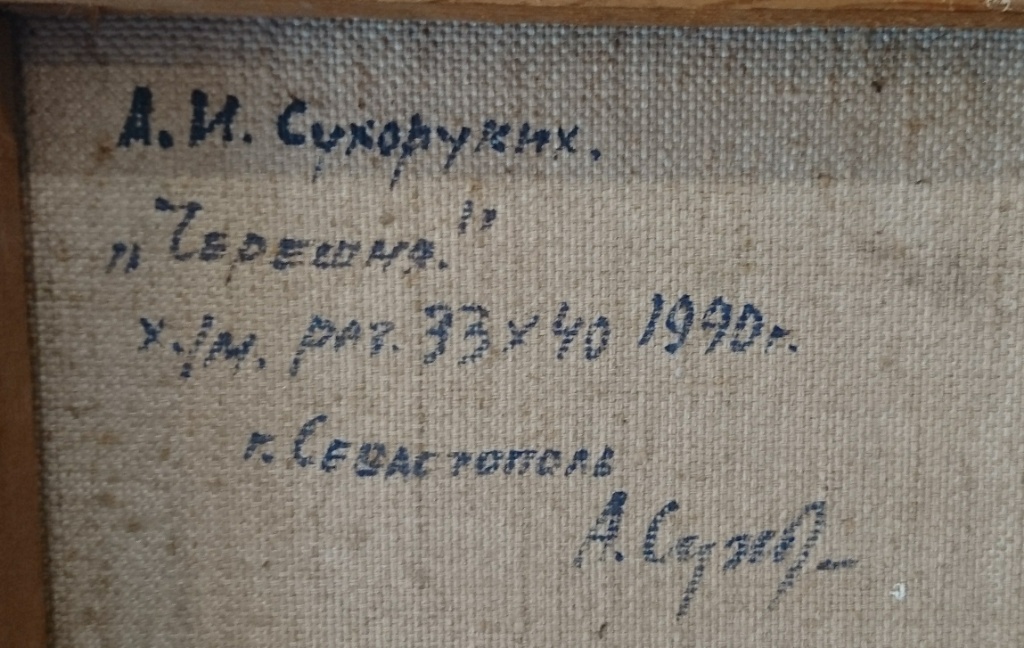 А. И. Сухоруких.
„Черешня."
х./м. раз. 33 х 40 1990 г.
г. Севастополь
А. Сухор